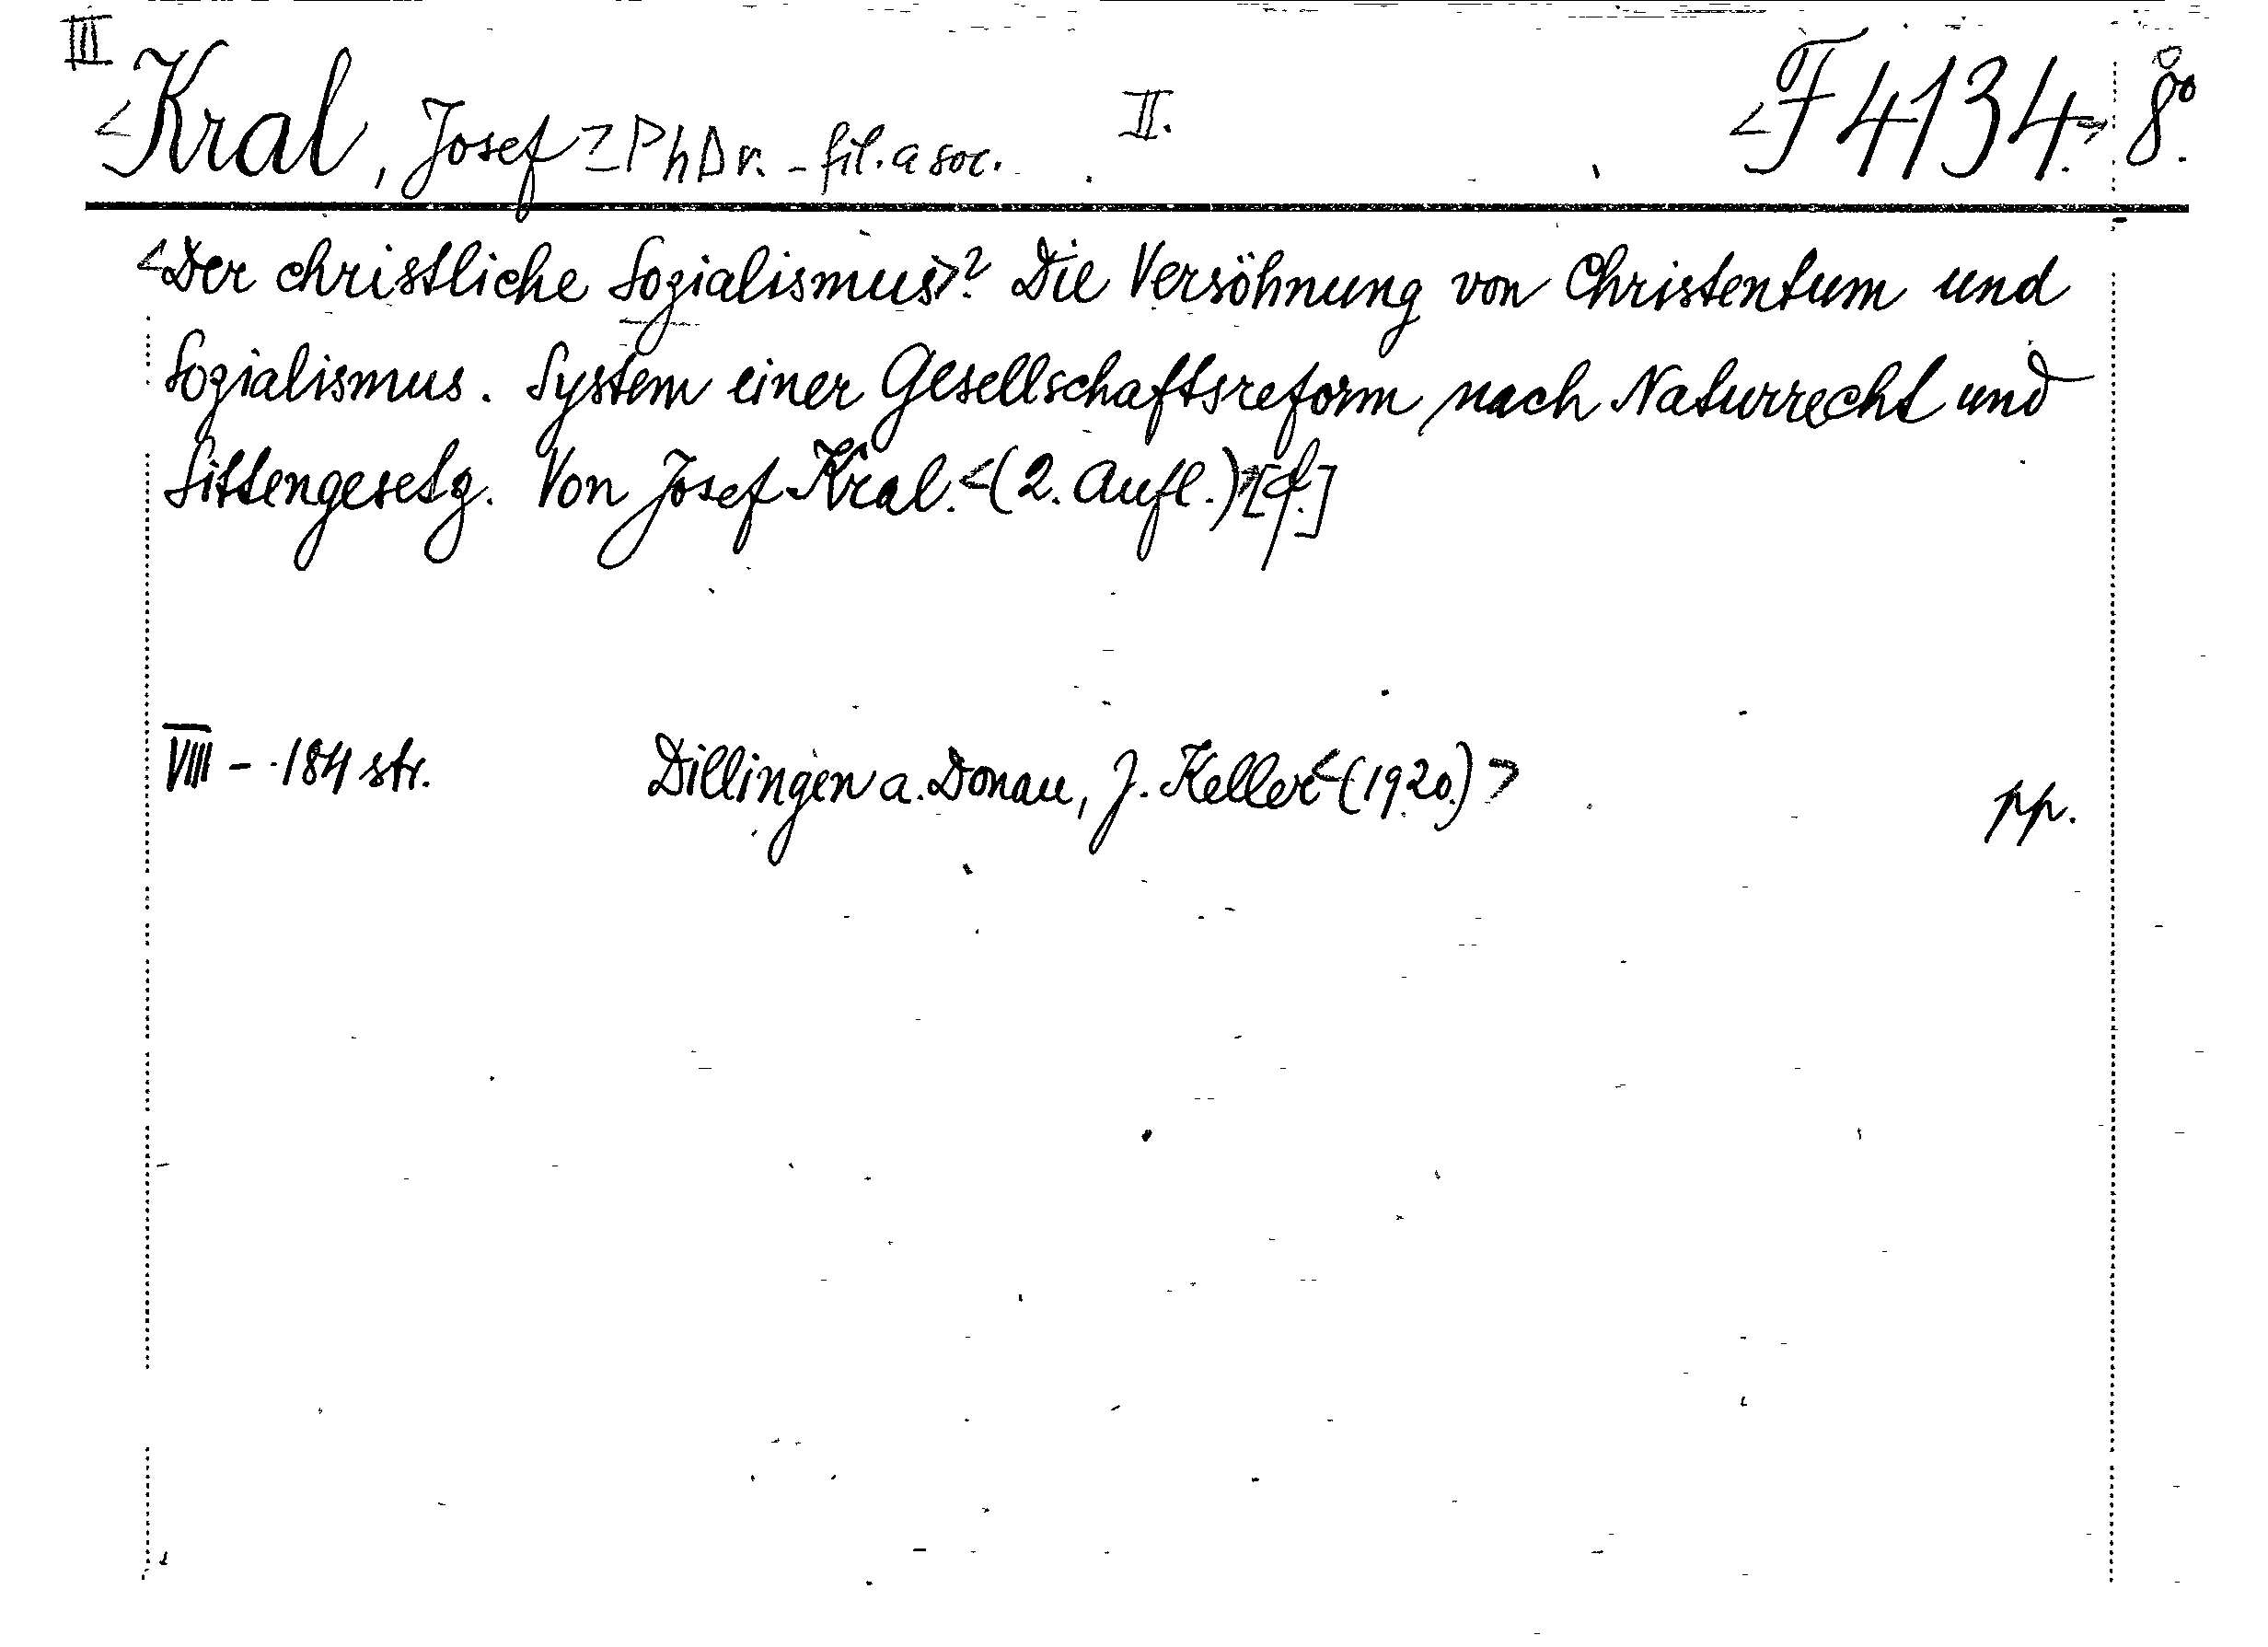 III
<Kral, Josef> PhDr. - fil. a soc. II. <F 4134.> 8º.
<Der christliche Sozialismus>? Die Versöhnung von Christentum und
Sozialismus. System einer Gesellschaftsreform nach Naturrecht und
Sittengesetz. Von Josef Kral. <(2. Aufl.)>
VIII - 184 str. Dillingen a. Donau, J. Keller <(1920.)> pp.